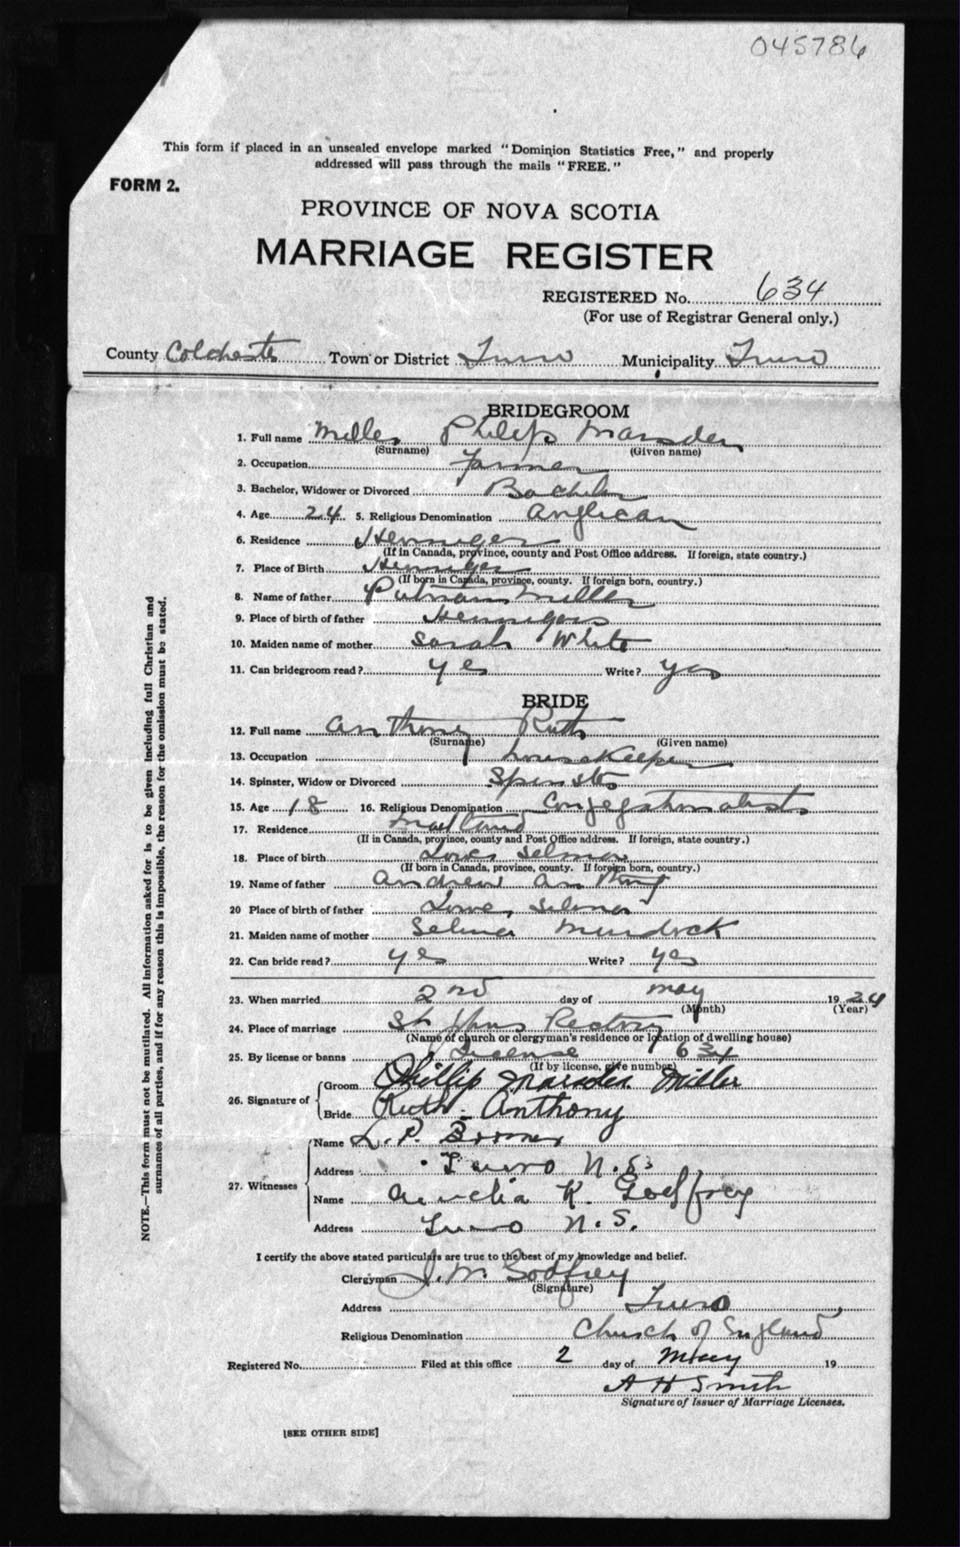 045786
This form if placed in an unsealed envelope marked "Dominion Statistics Free," and properly
addressed will pass through the mails "FREE."
FORM 2.
PROVINCE OF NOVA SCOTIA
MARRIAGE REGISTER
REGISTERED No. 634
(For use of Registrar General only.)
County Colchester Town or District Truro Municipality Truro
BRIDEGROOM
1. Full name Miller Philip Marsden
(Surname) (Given name)
2. Occupation Farmer
3. Bachelor, Widower or Divorced Bachelor
4. Age 24 5. Religious Denomination Anglican
6. Residence
(If in Canada, province, county and Post Office address. If foreign, state country.)
7. Place of Birth
(If born in Canada, province, county. If foreign born, country.)
8. Name of father Putnam Miller
9. Place of birth of father
10. Maiden name of mother Sarah White
11. Can bridegroom read? yes Write? yes
BRIDE
12. Full name Anthony Ruth
(Surname) (Given name)
13. Occupation housekeeper
14. Spinster, Widow or Divorced Spinster
15. Age 18 16. Religious Denomination Congegationalists
17. Residence Maitland
(If in Canada, province, county and Post Office address. If foreign, state country.)
18. Place of birth Lower Selma
(If born in Canada, province, county. If foreign born, country.)
19. Name of father Andrew Anthony
20 Place of birth of father Lower Selma
21. Maiden name of mother Selma Murdock
22. Can bride read? yes Write? yes
23. When married 2nd day of May 1924
(Month) (Year)
24. Place of marriage St Johns Rectory
(Name of church or clergyman's residence or location of dwelling house)
25. By license or banns License 634
(If by license, give number)
26. Signature of Groom Phillip Marsden Miller
Bride Ruth Anthony
27. Witnesses Name L. P.
Address Truro N.S.
Name Aurelia K. Godfrey
Address Truro N.S.
I certify the above stated particulars are true to the best of my knowledge and belief.
Clergyman J. M. Godfrey
(Signature)
Address Truro
Religious Denomination Church of England
Registered No. Filed at this office 2 day of May 19
A H Smith
Signature of Issuer of Marriage Licenses.
[SEE OTHER SIDE]
NOTE.—This form must not be mutilated. All information asked for is to be given including full Christian and
surnames of all parties, and if for any reason this is impossible, the reason for the omission must be stated.